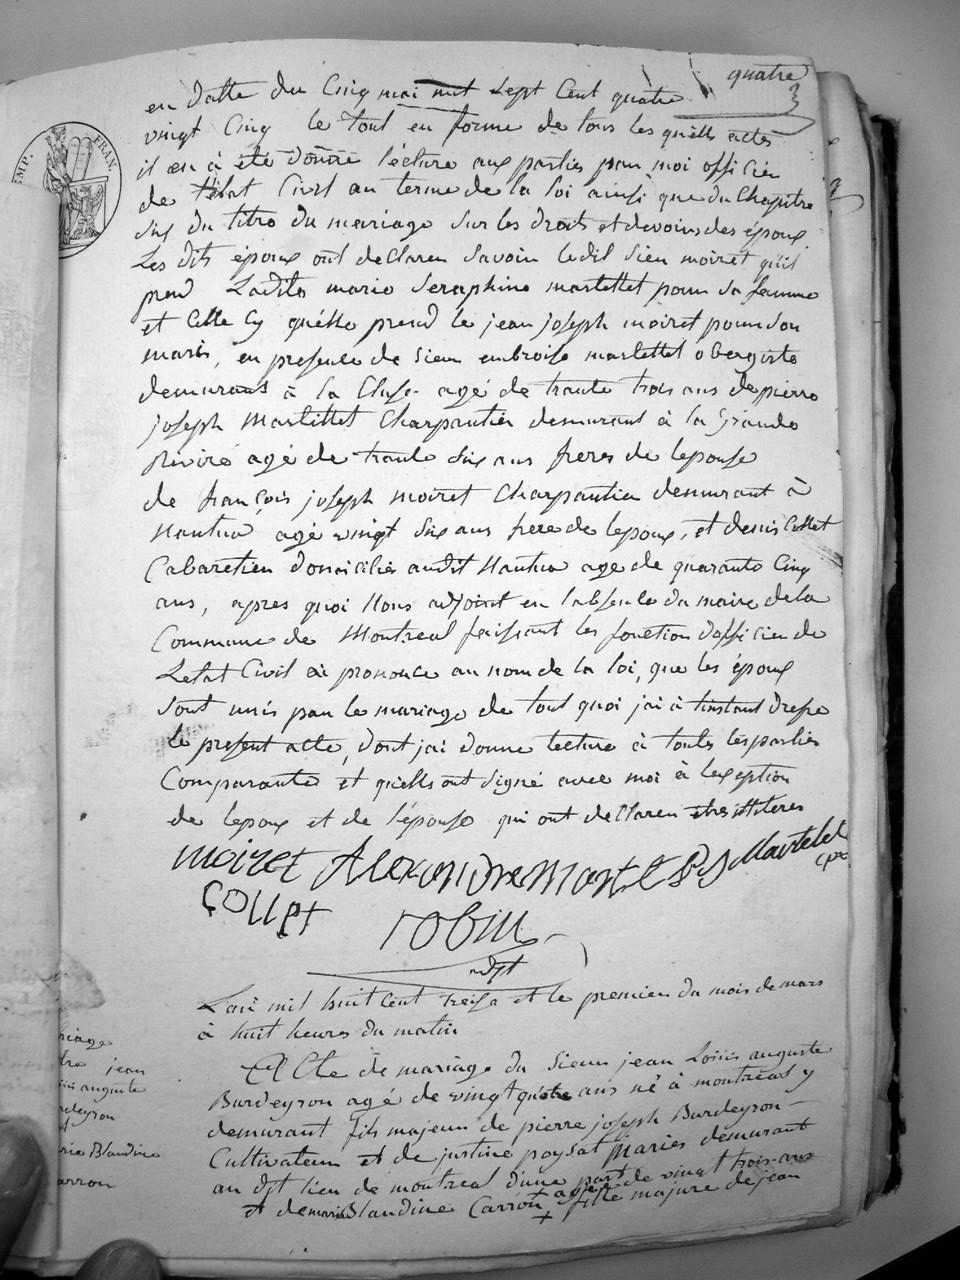 quatre
en datte du Cinq mai mil Sept Cent quatre
vingt Cinq le tout en forme de tous les quells actes
il en à été donné lécture aux parties par moi officier
de létat Civil au terme de la loi ainsi que du Chapitre
Six du titre du mariage Sur les droits et devoirs des époux
Les dits époux ont declaren Savoir ledit Sieur moiret quil
prend Ladite marie Seraphine martellet pour Sa femme
et Celle Cy quélle prend le jean joseph moiret pour son
maris, en presence de Sieur embroise martellet obergiste
demurant à la Cluse agé de trante trois ans de pierre
joseph Martellet Charpantier demurant à la Grande
Riviré agé de trante Six ans freres de lepouse
de françois joseph moiret Charpantier demurant à
Nantua agé vingt Six ans frere de lepoux, et denis Collet
Cabaretier domiciliés audit Nantua age de quarante Cinq
ans, apres quoi Nous adjoint en labsence du maire de la
Commune de Montreal faissant les fonction dofficier de
Letat Civil ai prononce au nom de la loi, que les époux
Sont unis par le mariage de tout quoi jai à linstant drese
le present acte, dont jai donne lecture à toutes les parties
Comparante et quells ont Signé avec moi à lexeption
de lepoux et de lépouse qui ont declaren etres illiteres
moiret Alexandre martelet Martelet
COLLET
robin
adjt
Lan mil huit Cent treise et le premier du mois de mars
à huit heures du matin
Acte de mariage du Sieur jean Loüis auguste
Burdeyron agé de vingt quatre ans né à montreal y
demurant fils majeur de pierre joseph Burdeyron
Cultivateur et de justine poysat Mariés demurant
au dit lieu de montreal d'une part
et de marie Blandine Carron + agée de vingt trois ans fille majure de jean
jean
auguste
Blandine
EMP. FRAN.